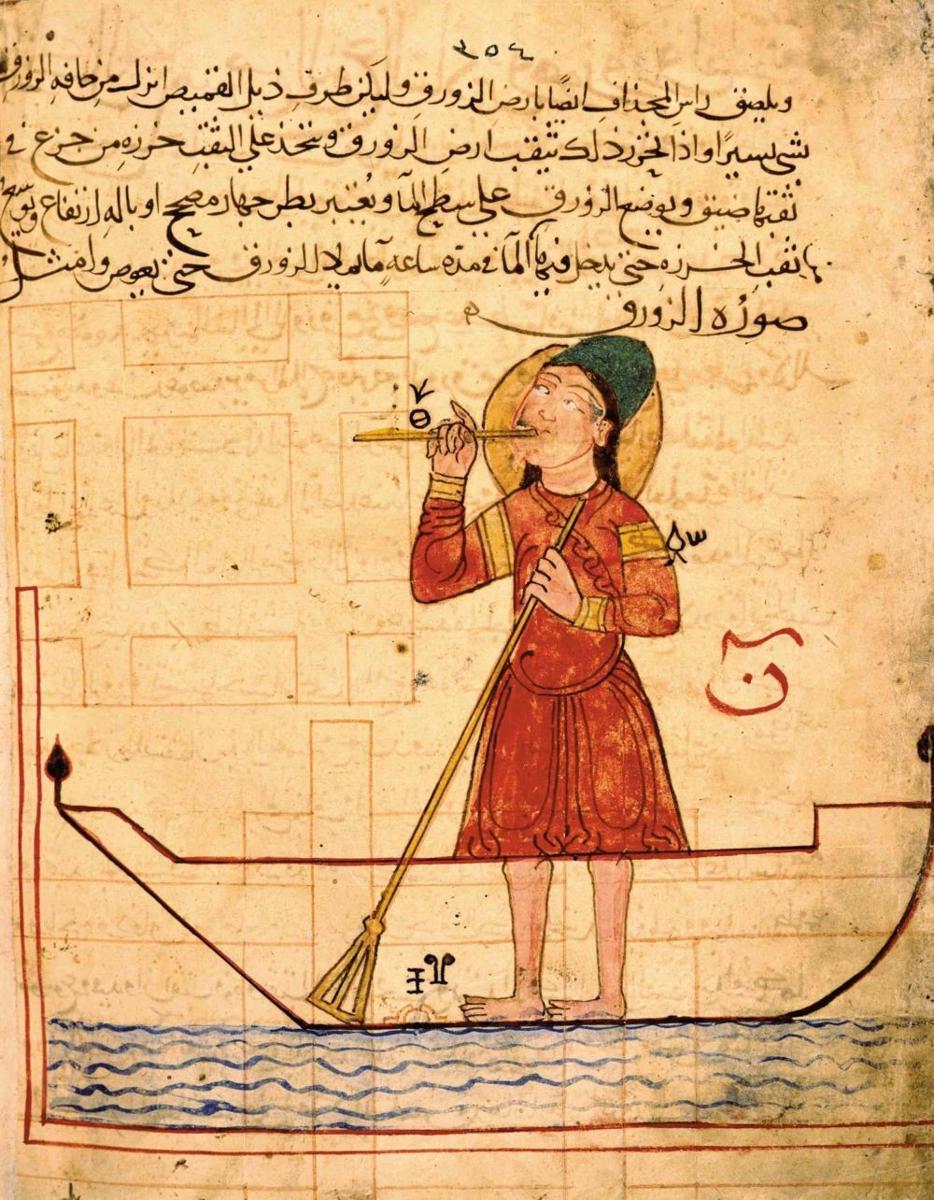 ٢٥٤
ويلصق راس المجذاف ايضًا بارض الزورق وليكن طرف ذيل القميص انزل من حافه الزورق
شى يسيرًا واذا نجز ذلك يثقب ارض الزورق ويتخذ على الثقب خرزه من جزع في
ثقبها ضيق ويوضع الزورق على سطح المآ ويعتبر بطرجهار مصحح او باله ارتفاع ويوسع
ثقب الخرزه حتى يدخل فيها المآ في مده ساعه مآ يملا الزورق حتى يغوص وامثل
صوره الزورق